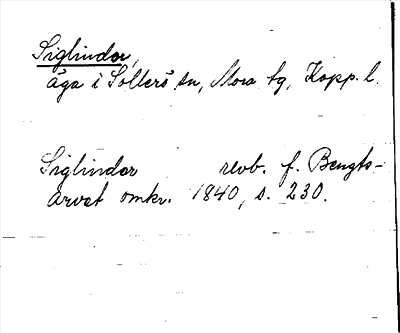 Siglindor,
äga i Sollerö sn, Mora tg, Kopp. l.
Siglindor revb. f. Bengts-
arvet omkr. 1840, s. 230.